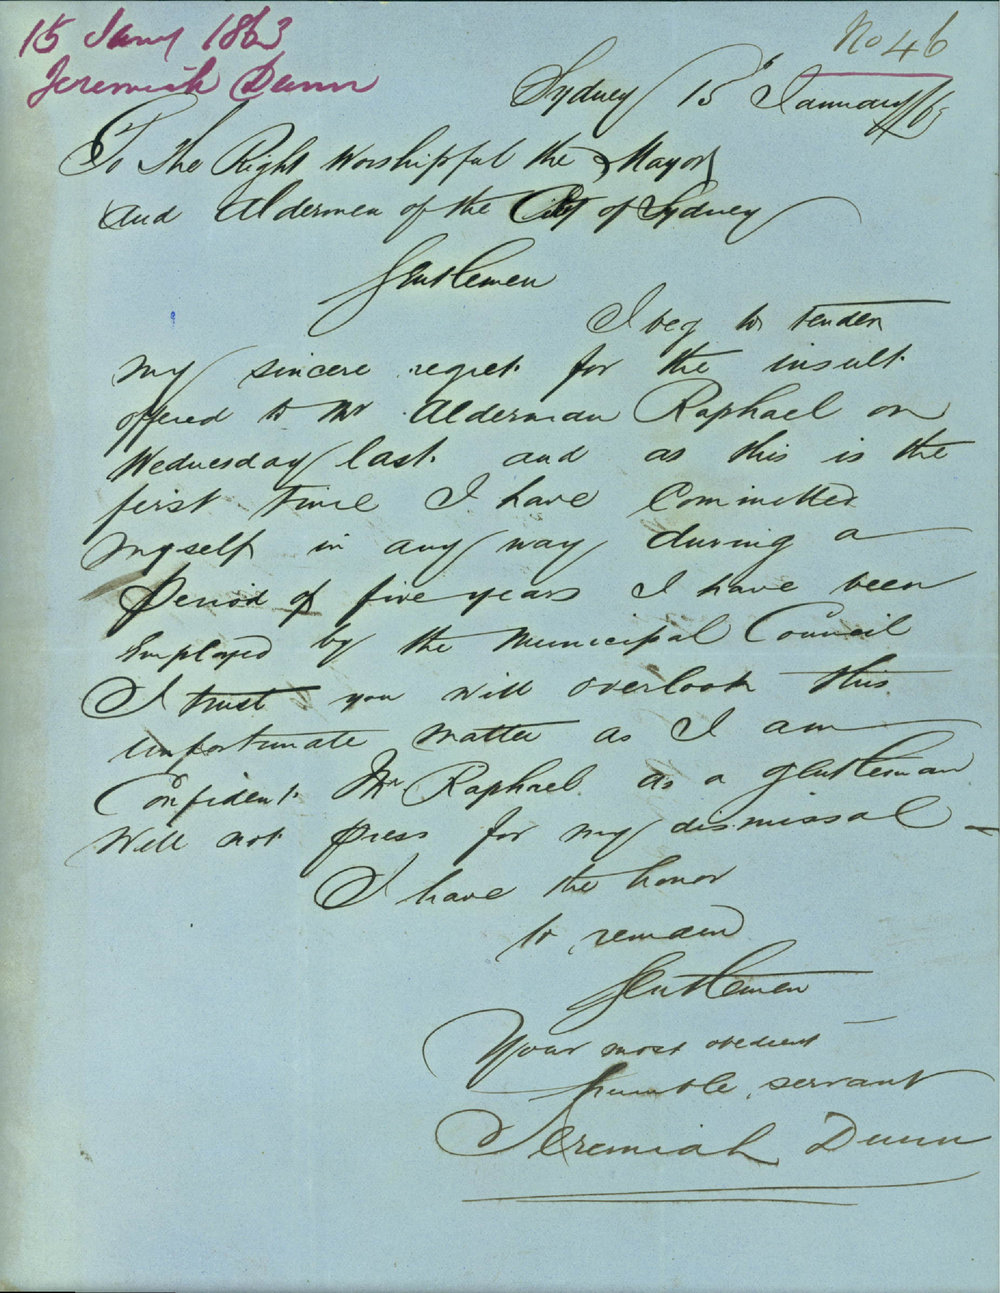 15 Jany 1863
Jeremiah Dunn
No 46
Sydney 15th January/63
To The Right Worshipful the Mayor
and Aldermen of the City of Sydney
Gentlemen
I beg to tender
my sincere regret for the insult
offered to Mr Alderman Raphael on
Wednesday last and as this is the
first time I have Committed
myself in any way during a
Period of five years I have been
Employed by the Municipal Council
I trust you will overlook this
unfortunate matter as I am
Confident Mr Raphael as a gentleman
Will not press for my dismissal –
I have the honor
to remain
Gentlemen
Your most obedient
humble servant
Jeremiah Dunn